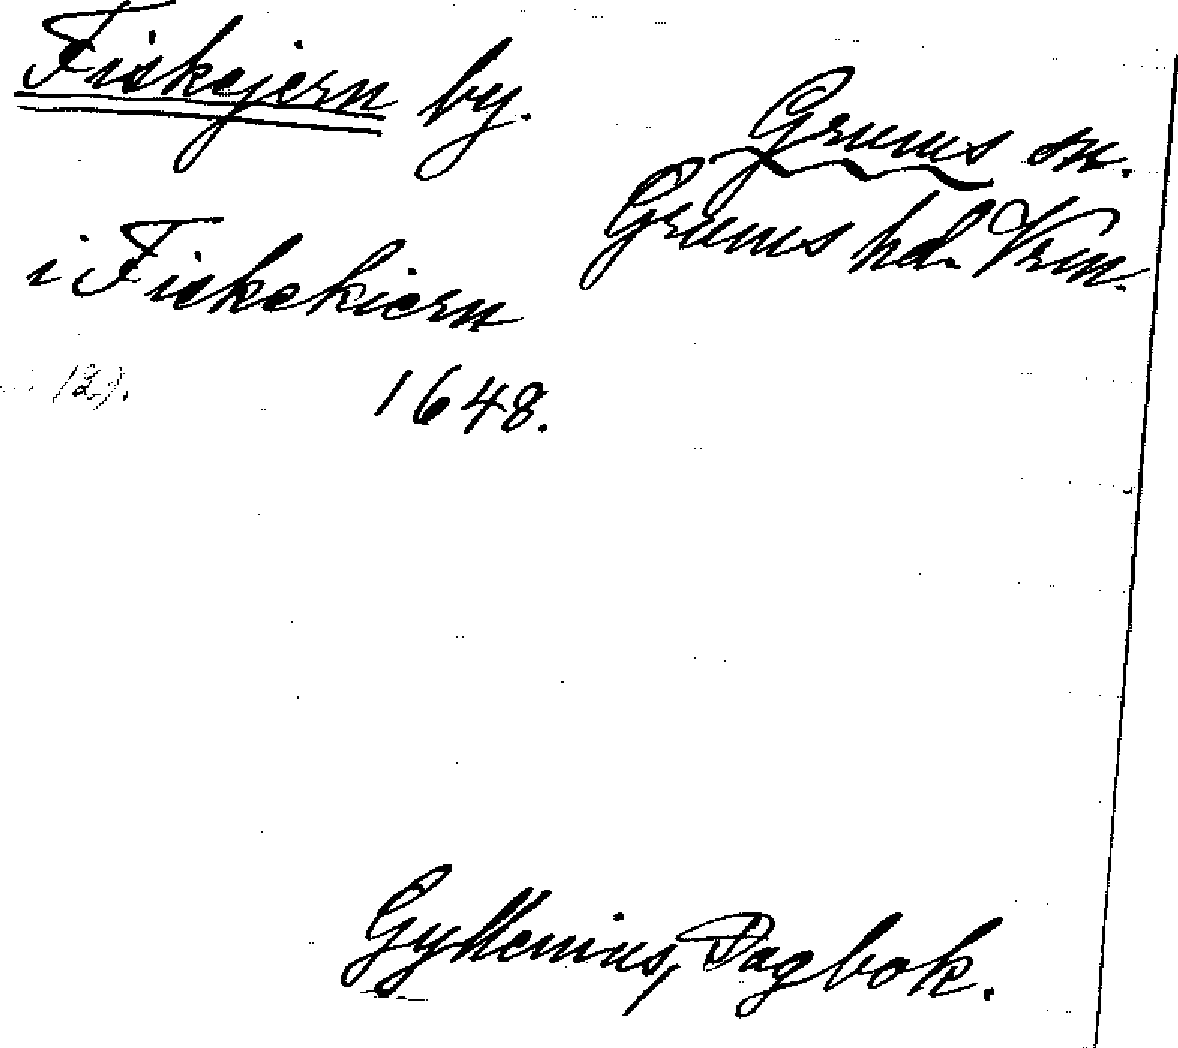 Fiskajern by.
Grums sn.
Grums hd. Vrm.
i Fiskekiern
1648.
Gyllenius, Dagbok.